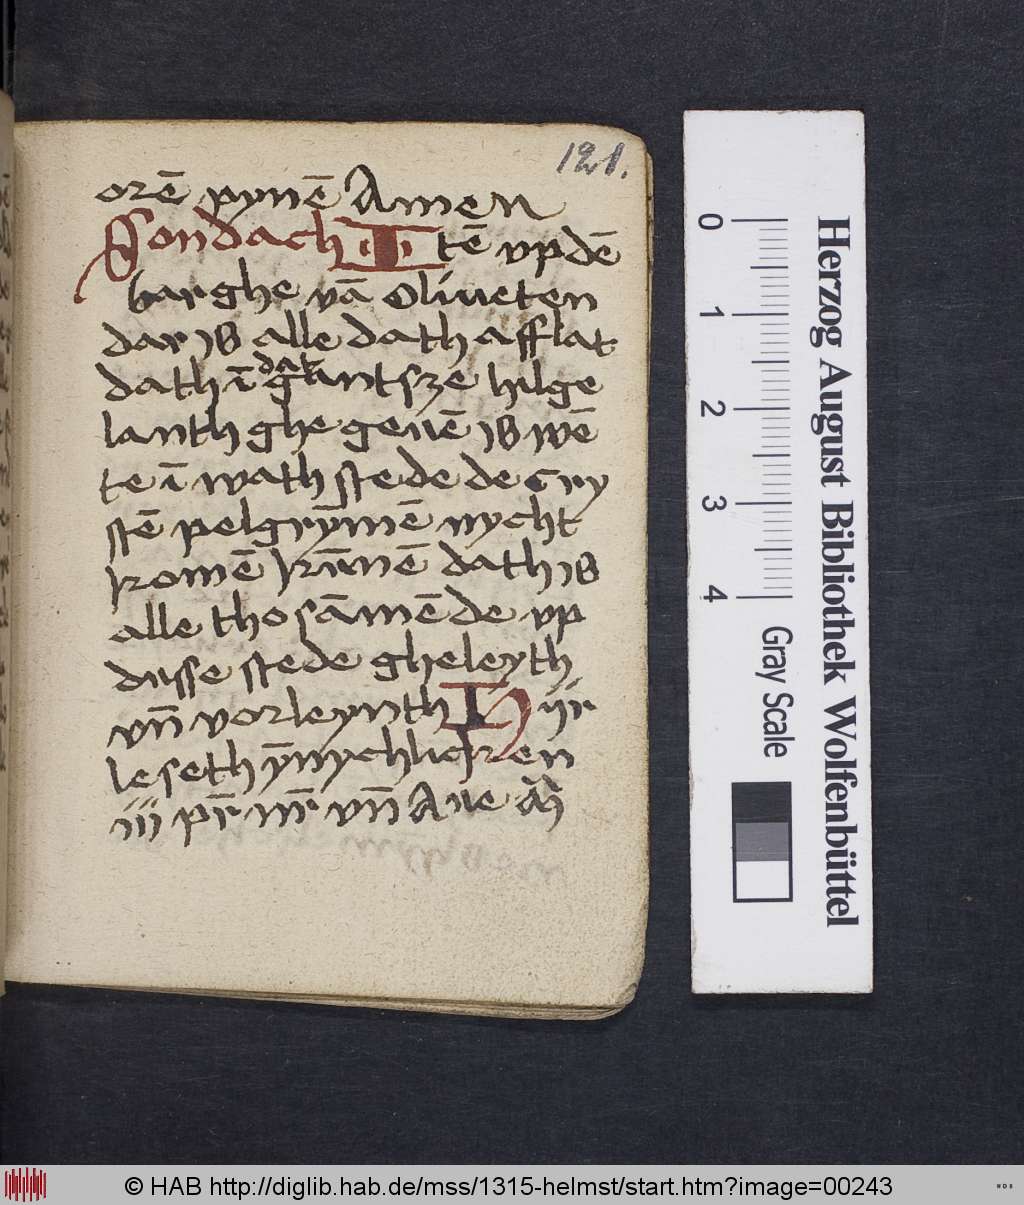 121.
orē pynē Amen
Sondach Itē vp dē
barghe vā Oliueten
dar is alle dath afflat
dath ī dat gantsze hilge
lanth ghe geuē is wē
te ī wath stede de cry
stē pelgrȳmē nycht
komē kūnē dath is
alle tho sāmē de vp
dusse stede gheleyth
vn̄ vorleynth Hijr
leseth ȳnychlicken
iij pr̄ nr̄ vn̄ Aue
Herzog August Bibliothek Wolfenbüttel
0 1 2 3 4 Gray Scale
© HAB http://diglib.hab.de/mss/1315-helmst/start.htm?image=00243